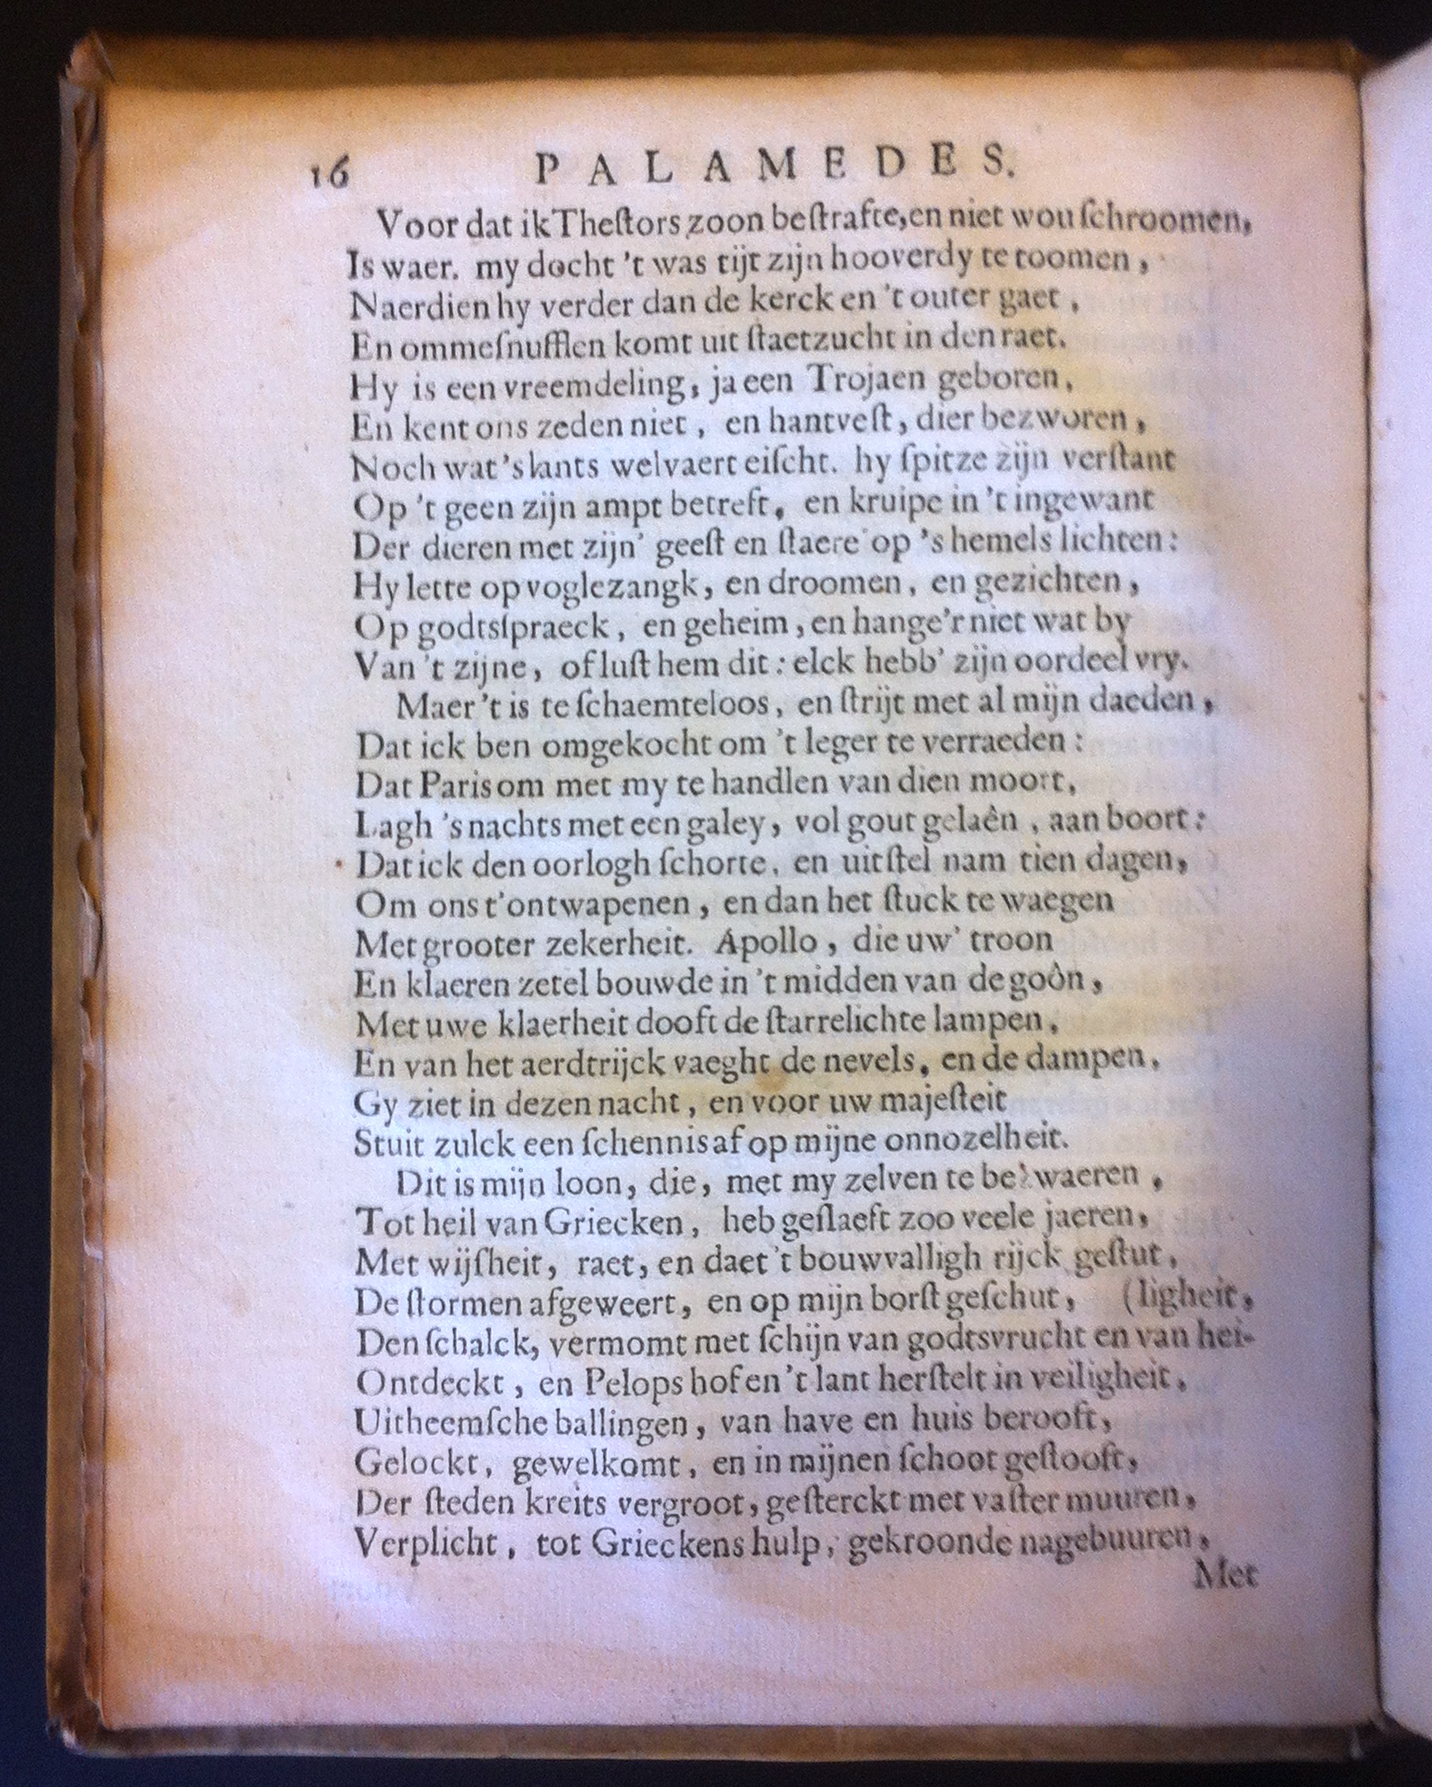 16 PALAMEDES.
Voor dat ik Theſtors zoon beſtrafte, en niet wou ſchroomen,
Is waer. my docht 't was tijt zijn hooverdy te toomen,
Naerdien hy verder dan de kerck en 't outer gaet,
En ommeſnufflen komt uit ſtaetzucht in den raet.
Hy is een vreemdeling, ja een Trojaen geboren,
En kent ons zeden niet, en hantveſt, dier bezworen,
Noch wat 's lants welvaert eiſcht. hy ſpitze zijn verſtant
Op 't geen zijn ampt betreft, en kruipe in 't ingewant
Der dieren met zijn' geeſt en ſtaere op 's hemels lichten:
Hy lette op voglezangk, en droomen, en gezichten,
Op godtsſpraeck, en geheim, en hange'r niet wat by
Van 't zijne, of luſt hem dit: elck hebb' zijn oordeel vry.
Maer 't is te ſchaemteloos, en ſtrijt met al mijn daeden,
Dat ick ben omgekocht om 't leger te verraeden:
Dat Paris om met my te handlen van dien moort,
Lagh 's nachts met een galey, vol gout gelaên, aan boort:
Dat ick den oorlogh ſchorte, en uitſtel nam tien dagen,
Om ons t'ontwapenen, en dan het ſtuck te waegen
Met grooter zekerheit. Apollo, die uw' troon
En klaeren zetel bouwde in 't midden van de goôn,
Met uwe klaerheit dooft de ſtarrelichte lampen,
En van het aerdtrijck vaeght de nevels, en de dampen,
Gy ziet in dezen nacht, en voor uw majeſteit
Stuit zulck een ſchennis af op mijne onnozelheit.
Dit is mijn loon, die, met my zelven te bezwaeren,
Tot heil van Griecken, heb geſlaeft zoo veele jaeren,
Met wijſheit, raet, en daet 't bouwvalligh rijck geſtut,
De ſtormen afgeweert, en op mijn borſt geſchut, (ligheit,
Den ſchalck, vermomt met ſchijn van godtsvrucht en van hei-
Ontdeckt, en Pelops hof en 't lant herſtelt in veiligheit,
Uitheemſche ballingen, van have en huis berooft,
Gelockt, gewelkomt, en in mijnen ſchoot geſtooft,
Der ſteden kreits vergroot, geſterckt met vaſter muuren,
Verplicht, tot Grieckens hulp, gekroonde nagebuuren,
Met